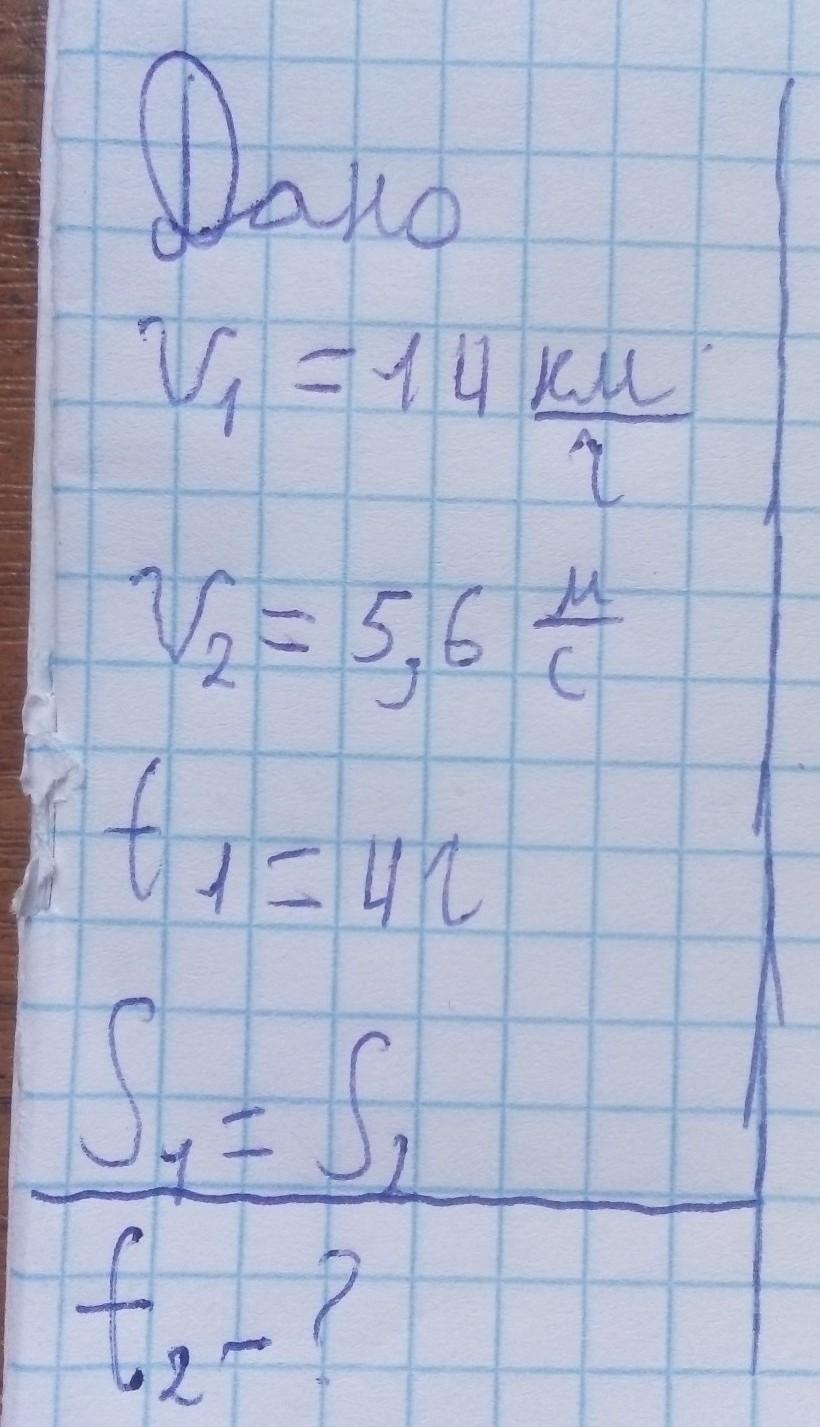 Дано
V₁ = 14 км/ч
V₂ = 5,6 м/с
t₁ = 4ч
S₁ = S₂
t₂ - ?